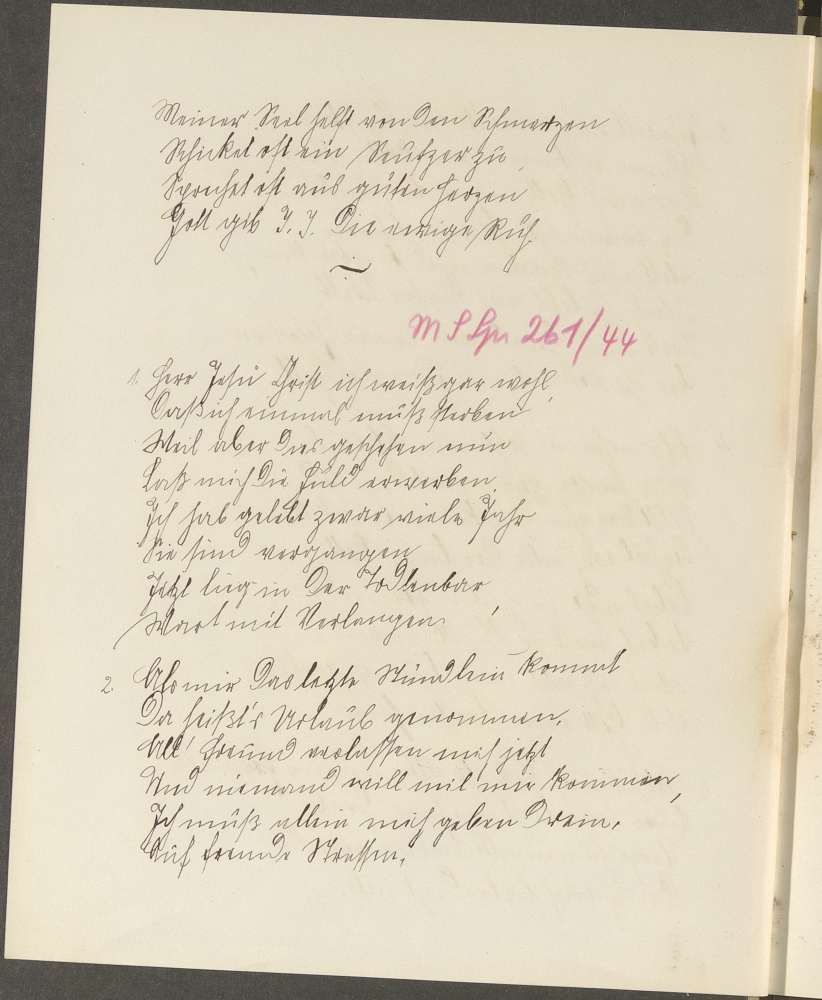 Meiner Seel helft von den Schmertzen
Schicket oft ein Seufzer zu
Sprechet oft aus guten Herzen
Gott geb I. I. Die ewige Ruh.
M S Gr 261/44
1. Herr Jesu Christ ich weiß gar wohl,
Daß ich einmal muß sterben
Weil aber dies geschehen nun
Laß mich die Huld erwerben,
Ich hab gelebt zwar viele Jahr
Sie sind vergangen
Jetzt lieg in der Todtenbar
Wart mit Verlangen.
2. Als mir das letzte Stündlein kommt
Da heißt's Urlaub genommen,
All' Freund verlassen mich jetzt
Und niemand will mit mir kommen,
Ich muß allein mich geben drein,
Auf fremde Strassen,